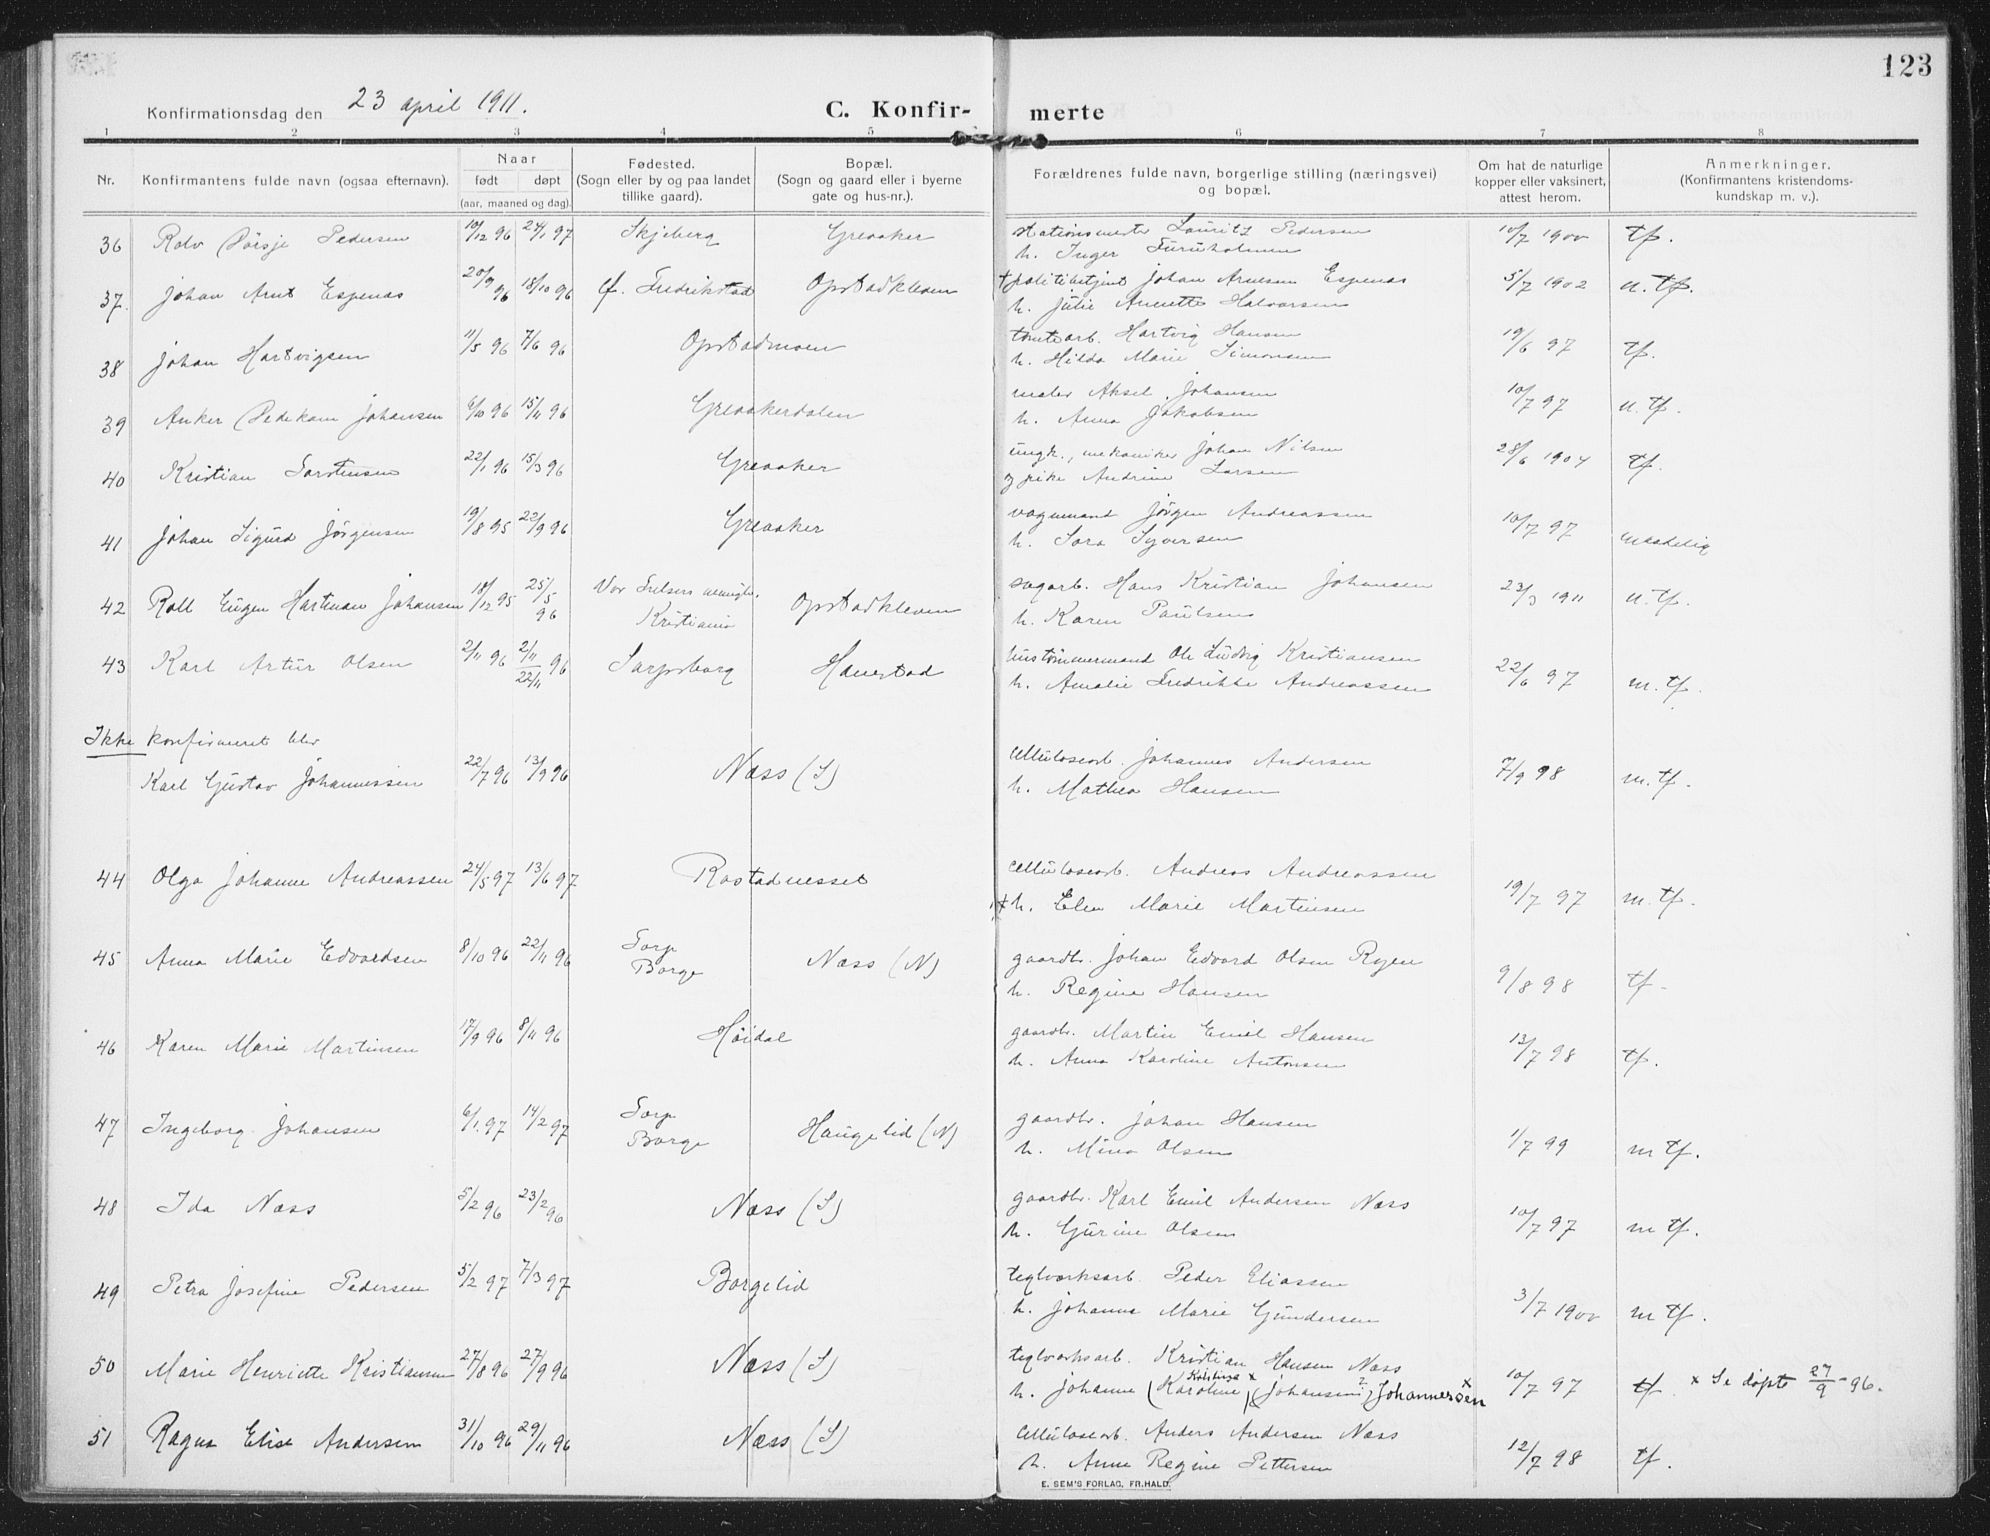 123
Konfirmationsdag den 23 april 1911.
C. Konfir- merte
1 2 3 4 5 6 7 8
Nr.
Konfirmantens fulde navn (ogsaa efternavn).
Naar
født døpt
(aar, maaned og dag).
Fødested.
(Sogn eller by og paa landet
tillike gaard).
Bopæl.
(Sogn og gaard eller i byerne
gate og hus-nr.).
Forældrenes fulde navn, borgerlige stilling (næringsvei)
og bopæl.
Om hat de naturlige
kopper eller vaksinert,
attest herom.
Anmerkninger.
(Konfirmantens kristendoms-
kundskap m. v.).
36 Rolv Pedersen 10/12 96 24/1 97 Skjeberg Greaaker
Lauritz Pedersen 10/7 1900 tf.
h. Inger Furuholmen
37. Johan Arnt Espenæs 20/9 96 18/10 96 Fredrikstad Opstadkleven
† politibetjent Johan Arnesen Espenæs 5/7 1902 n. tf.
h. Julie Annette Halvorsen
38 Johan Hartvigsen 11/5 96 7/6 96 Opstadmoen
tomtearb. Hartvig Hansen 19/6 97 tf.
h. Hilda Marie Simonsen
39 Anker Johansen 6/10 96 15/11 96 Greaakerdalen
maler Aksel Johansen 10/7 97 n. tf.
h. Anna Jakobsen
40 Kristian Torstensen 22/1 96 15/3 96 Greaaker
ungk., mekaniker Johan Nilsen 28/6 1904 tf.
pike Andrine Larsen
41 Johan Sigurd Jørgensen 19/8 95 22/9 96 Greaaker
vognmand Jørgen Andreassen 10/7 97
h. Sara Syversen
42 Rolf Eugen Hartman Johansen 18/12 95 25/5 96 Vor Frelsers menigh. Kristiania Opstadkleven
sagarb. Hans Kristian Johansen 23/3 1911 n. tf.
h. Karen Paulsen
43 Karl Artur Olsen 2/11 96 2/11 22/11 96 Sarpsborg Hanestad
hustømmermand Ole Ludvig Kristiansen 22/6 97 m. tf.
h. Amalie Fredrikke Andreassen
Ikke konfirmeret blev
Karl Gustav Johannessen 22/7 96 13/9 96 Næss (S)
cellulosearb. Johannes Andersen 7/9 98 m. tf.
h. Mathea Hansen
44 Olga Johanne Andreassen 24/5 97 13/6 97 Rostadnesset
cellulosearb. Andreas Andreassen 19/7 97 m. tf.
h. Elen Marie Martinsen
45 Anna Marie Edvardsen 8/10 96 22/11 96 Torp Borge Næss (N)
gaardbr. Johan Edvard Olsen Ryen 9/8 98 tf.
h. Regine Hansen
46 Karen Marie Martinsen 17/9 96 8/11 96 Høidal
gaardbr. Martin Emil Hansen 13/7 98 tf.
h. Anna Karoline Antonsen
47 Ingeborg Johansen 6/1 97 14/2 97 Torp Borge Haugelid (N)
gaardbr. Johan Hansen 1/7 99 m tf.
h. Mina Olsen
48 Ida Næss 5/2 96 23/2 96 Næss (S)
gaardbr. Karl Emil Andersen Næss 10/7 97 m tf.
h. Gurine Olsen
49 Petra Josefine Pedersen 5/2 97 7/3 97 Borgelid
teglverksarb. Peder Eliassen 3/7 1900 m tf.
h. Johanna Marie Gundersen
50 Marie Henriette Kristiansen 27/8 96 27/9 96 Næss (S)
teglverksarb. Kristian Hansen Næss 10/7 97 tf. x Se døpte 27/9 - 96.
h. Johanne (Karoline) x (Johansen ?) Johannessen x
51 Ragna Elise Andersen 31/10 96 29/11 96 Næss (S)
cellulosearb. Anders Andersen Næss 12/7 98 tf.
h. Anne Regine Pettersen
E. SEM'S FORLAG, FR.HALD.